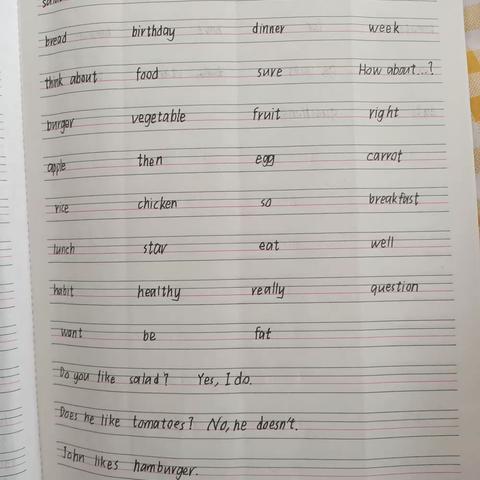 bread birthday dinner week
think about food sure How about...?
burger vegetable fruit right
apple then egg carrot
rice chicken so breakfast
lunch star eat well
habit healthy really question
want be fat
Do you like salad? Yes, I do.
Does he like tomatoes? No, he doesn't.
John likes hamburger.